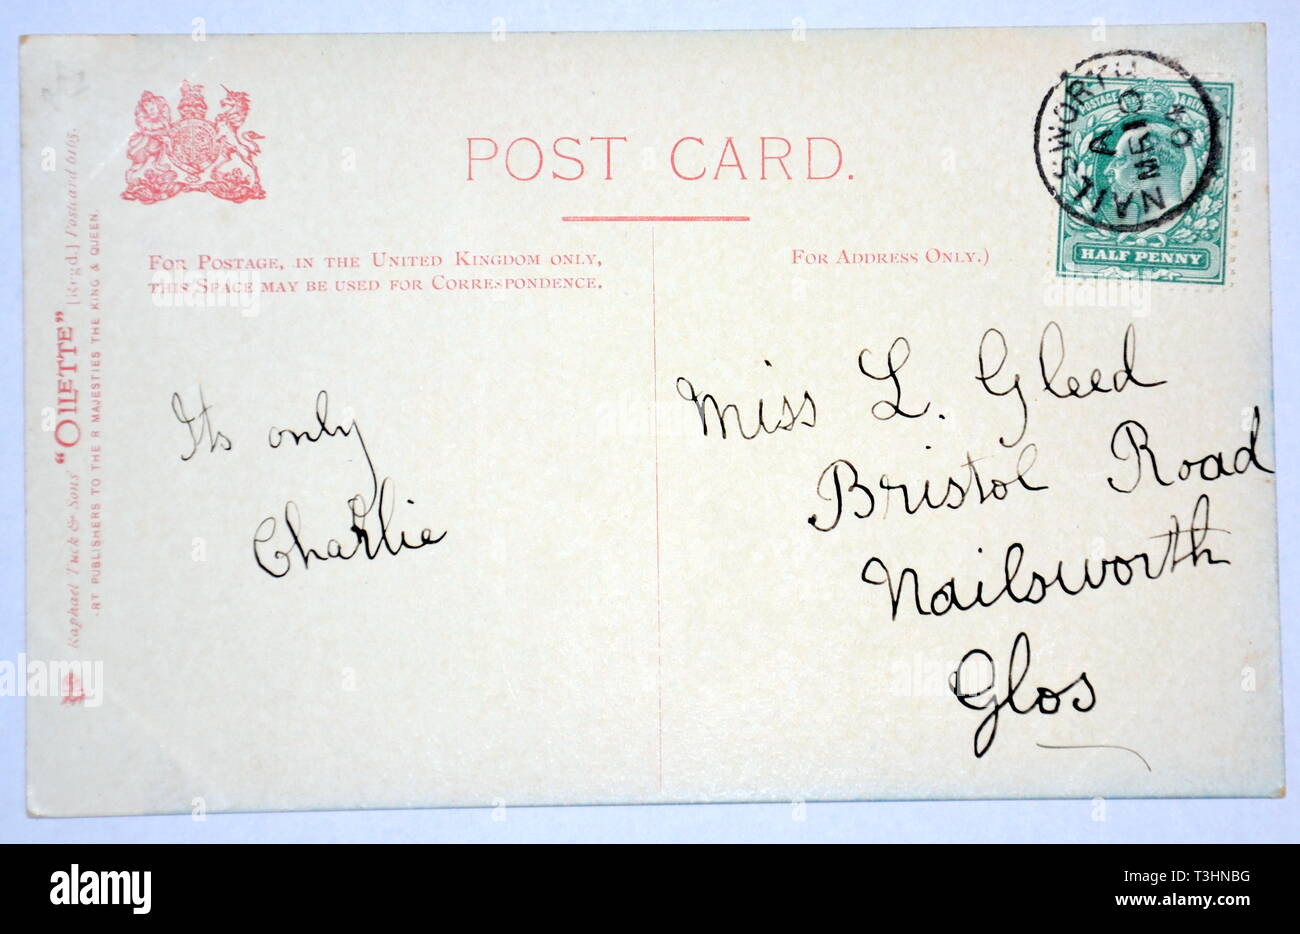 POST CARD.
FOR POSTAGE, IN THE UNITED KINGDOM ONLY,
THIS SPACE MAY BE USED FOR CORRESPONDENCE.
FOR ADDRESS ONLY.)
Raphael Tuck & Sons' "OILETTE" [Regd.] Postcard 6165.
RT PUBLISHERS TO THE R MAJESTIES THE KING & QUEEN.
NAILSWORTH
A
MR 10
04
POSTAGE REVENUE
HALF PENNY
Its only
Charlie
Miss L. Gleed
Bristol Road
Nailsworth
Glos
alamy
Image ID: T3HNBG
www.alamy.com